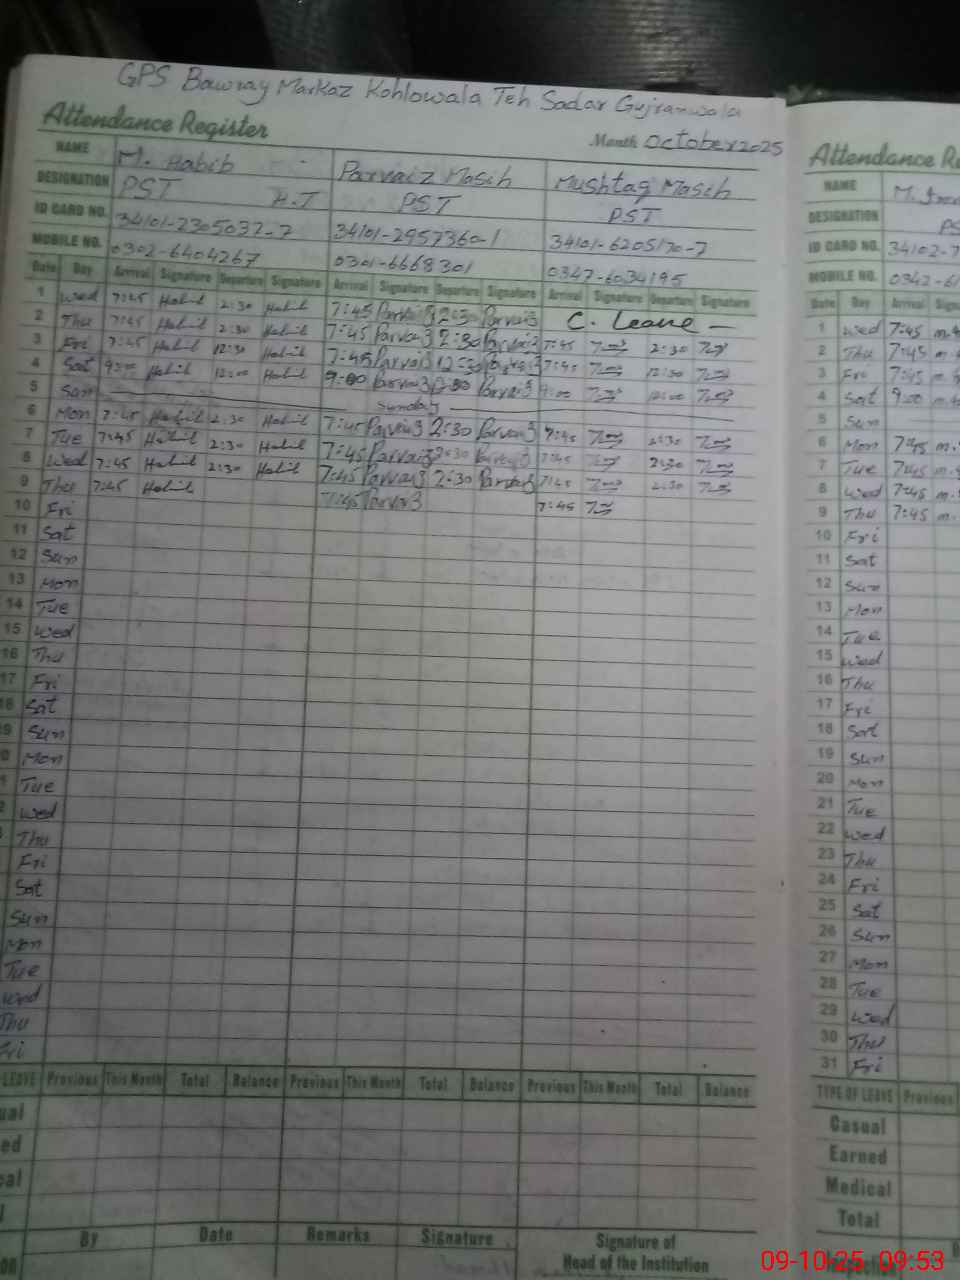 GPS Bawray Markaz Kohlowala Teh Sadar Gujranwala
Attendance Register Month October 2025
NAME M. Habib Parvaiz Masih Mushtaq Masih
DESIGNATION PST H.T PST PST
ID CARD NO. 34101-2305037-7 34101-2957360-1 34101-6205170-7
MOBILE NO. 0302-6404267 0301-6668301 0347-6034195
Date Day Arrival Signature Departure Signature Arrival Signature Departure Signature Arrival Signature Departure Signature
1 Wed 7:45 Habib 2:30 Habib 7:45 Parvaiz 2:30 Parvaiz C. Leave
2 Thu 7:45 Habib 2:30 Habib 7:45 Parvaiz 2:30 Parvaiz 7:45 2:30
3 Fri 7:45 Habib 12:30 Habib 7:45 Parvaiz 12:30 Parvaiz 7:45 12:30
4 Sat 9:00 Habib 12:00 Habib 9:00 Parvaiz Parvaiz 9:00 12:00
5 Sun Sunday
6 Mon 7:45 Habib 2:30 Habib 7:45 Parvaiz 2:30 Parvaiz 7:45 2:30
7 Tue 7:45 Habib 2:30 Habib 7:45 Parvaiz 2:30 Parvaiz 7:45 2:30
8 Wed 7:45 Habib 2:30 Habib 7:45 Parvaiz 2:30 Parvaiz 7:45 2:30
9 Thu 7:45 Habib 7:45 Parvaiz 7:45
10 Fri
11 Sat
12 Sun
13 Mon
14 Tue
15 Wed
16 Thu
17 Fri
18 Sat
9 Sun
0 Mon
1 Tue
2 Wed
Thu
Fri
Sat
Sun
Mon
Tue
Wed
Thu
Fri
LEAVE Previous This Month Total Balance Previous This Month Total Balance Previous This Month Total Balance
ual
ed
cal
l
By Date Remarks Signature Signature of
Head of the Institution
Attendance Re
NAME M.
DESIGNATION PS
ID CARD NO. 34102-7
MOBILE NO. 0342-6
Date Day Arrival Signa
1 Wed 7:45 m.
2 Thu 7:45 m.
3 Fri 7:45 m.
4 Sat 9:00 m.
5 Sun
6 Mon 7:45 m.
7 Tue 7:45 m.
8 Wed 7:45 m.
9 Thu 7:45 m.
10 Fri
11 Sat
12 Sun
13 Mon
14 Tue
15 Wed
16 Thu
17 Fri
18 Sat
19 Sun
20 Mon
21 Tue
22 Wed
23 Thu
24 Fri
25 Sat
26 Sun
27 Mon
28 Tue
29 Wed
30 Thu
31 Fri
TYPE OF LEAVE Previous
Casual
Earned
Medical
Total
09-10-25 09:53